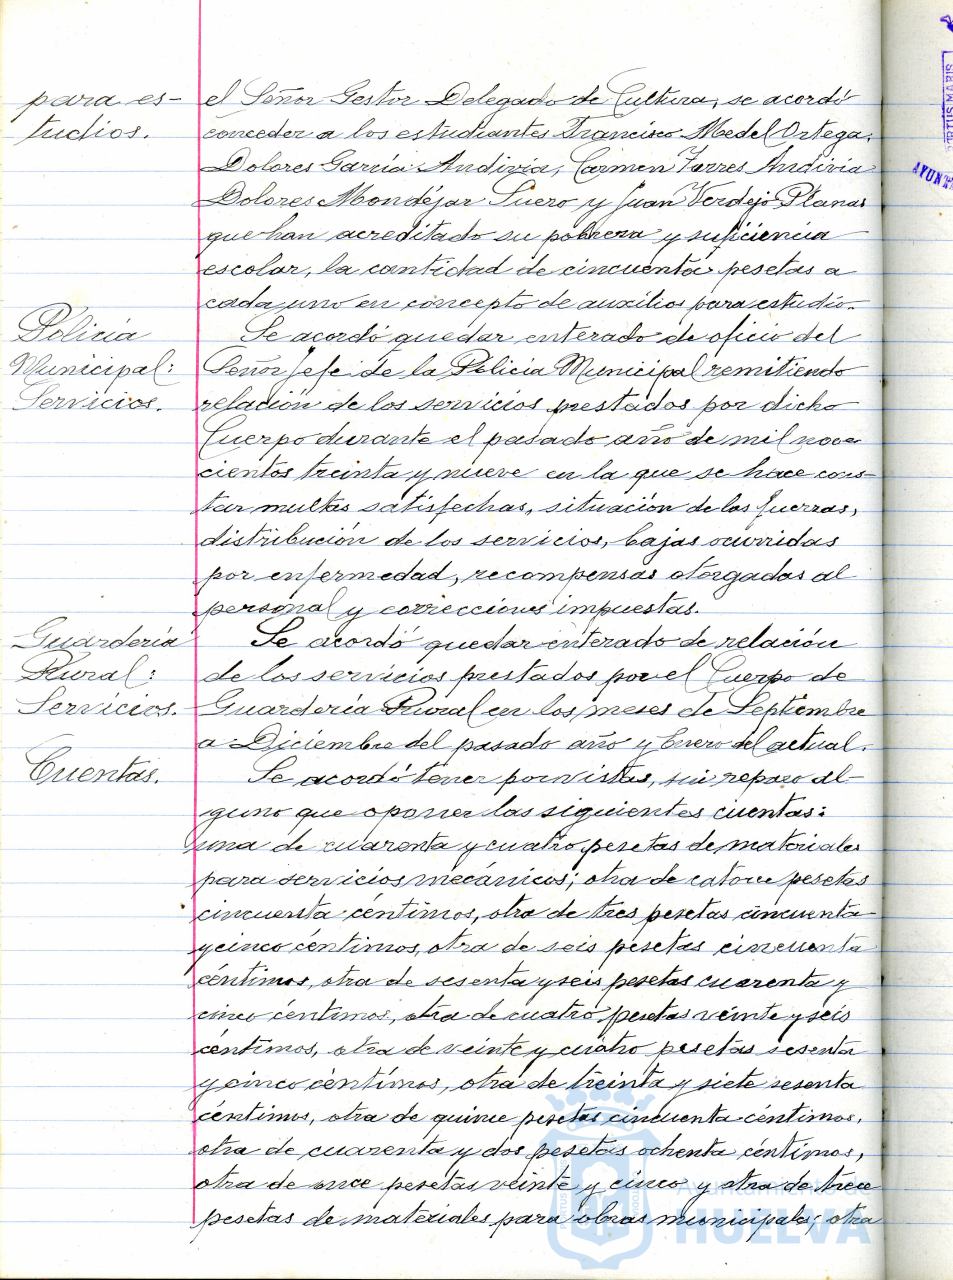 para es-
tudios.
el Señor Gestor Delegado de Cultura, se acordó
conceder a los estudiantes Francisco Medel Ortega,
Dolores García Andivia, Carmen Torres Andivia
Dolores Mondéjar Suero y Juan Verdejo Planas
que han acreditado su pobreza y suficiencia
escolar, la cantidad de cincuenta pesetas a
cada uno en concepto de auxilios para estudio.
Policía
Municipal:
Servicios.
Se acordó quedar enterado de oficio del
Señor Jefe de la Policía Municipal remitiendo
relación de los servicios prestados por dicho
Cuerpo durante el pasado año de mil nove-
cientos treinta y nueve en la que se hace cons-
tar multas satisfechas, situación de las fuerzas,
distribución de los servicios, bajas ocurridas
por enfermedad, recompensas otorgadas al
personal y correcciones impuestas.
Guardería
Rural:
Servicios.
Se acordó quedar enterado de relación
de los servicios prestados por el Cuerpo de
Guardería Rural en los meses de Septiembre
a Diciembre del pasado año y Enero del actual.
Cuentas.
Se acordó tener por vistas, sin reparo al-
guno que oponer las siguientes cuentas:
una de cuarenta y cuatro pesetas de materiales
para servicios mecánicos; otra de catorce pesetas
cincuenta céntimos, otra de tres pesetas cincuenta
y cinco céntimos, otra de seis pesetas cincuenta
céntimos, otra de sesenta y seis pesetas cuarenta y
cinco céntimos, otra de cuatro pesetas veinte y seis
céntimos, otra de veinte y cuatro pesetas sesenta
y cinco céntimos, otra de treinta y siete sesenta
céntimos, otra de quince pesetas cincuenta céntimos,
otra de cuarenta y dos pesetas ochenta céntimos,
otra de once pesetas veinte y cinco y otra de trece
pesetas de materiales para obras municipales; otra
Ayuntamiento de
HUELVA
PORTUS MARIS
AYUNT